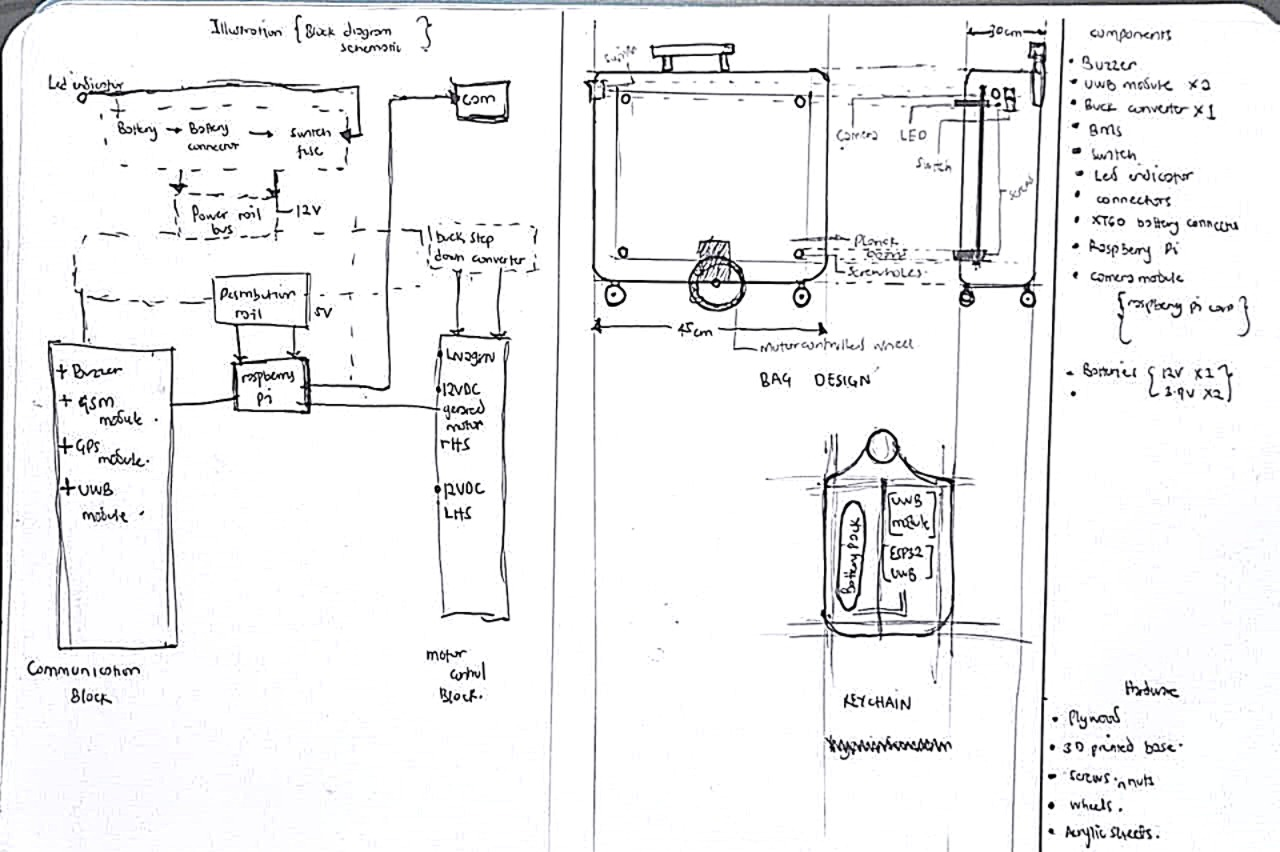 Illustration { Block diagram
schematic }
Led indicator
Battery → Battery
connector → switch
fuse
com
Power rail
bus
12V
buck step
down converter
Desmbution
rail
5V
raspberry
Pi
+ Buzzer
+ GSM
module.
+ GPS
module.
+ UWB
module.
Communication
Block
12VDC
geared
motor
rHS
12VDC
LHS
motor
control
Block.
switch
camera
LED
switch
screw
Planck
screwholes.
45cm
30cm
motor controlled wheel
BAG DESIGN
Battery pack
UWB
module
ESP32
UWB
KEYCHAIN
components
• Buzzer
• UWB module x2
• Buck converter x1
• BMS
• switch
• Led indicator
• connectors
• XT60 battery connectors
• Raspberry Pi
• camera module
{ raspberry pi cam }
• Batteries { 12V x1
3.9V x2 }
Hardware
• Plywood
• 3D printed base.
• screws. nuts
• wheels.
• Acrylic sheets.